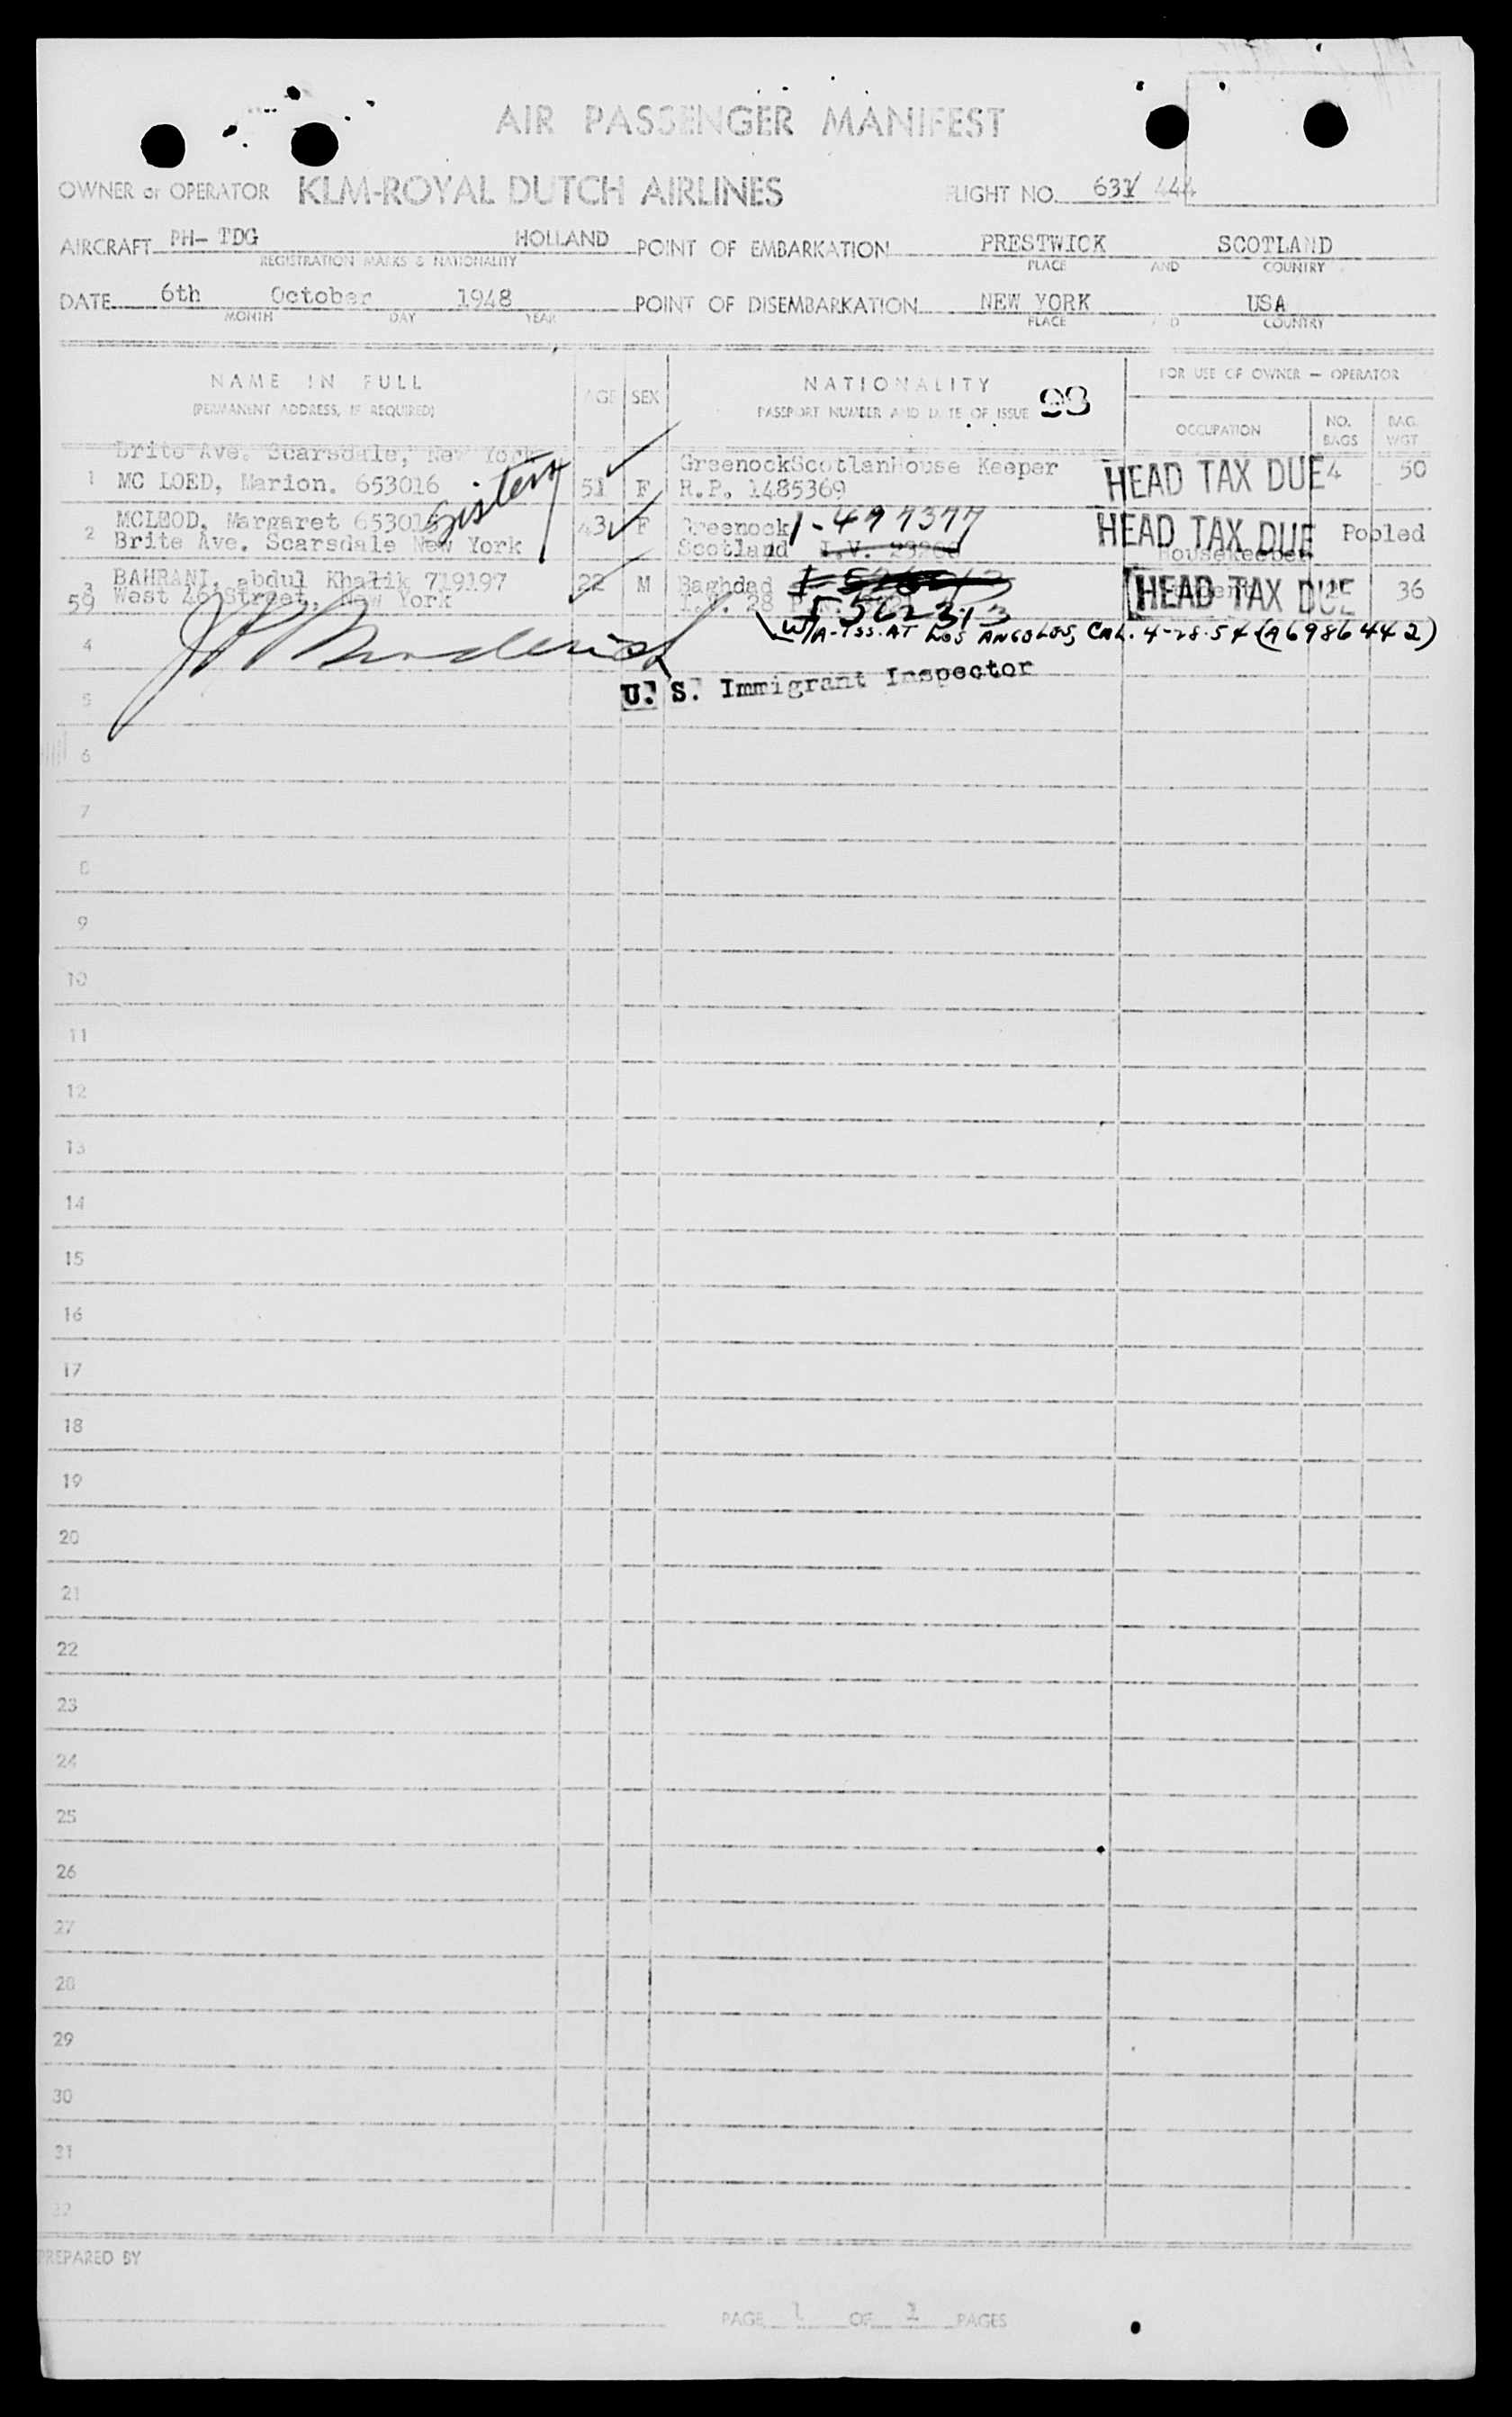 AIR PASSENGER MANIFEST
OWNER or OPERATOR KLM-ROYAL DUTCH AIRLINES FLIGHT NO. 631/ 444
AIRCRAFT PH- TDG HOLLAND POINT OF EMBARKATION PRESTWICK SCOTLAND
REGISTRATION MARKS & NATIONALITY PLACE AND COUNTRY
DATE 6th October 1948 POINT OF DISEMBARKATION NEW YORK USA
MONTH DAY YEAR PLACE AND COUNTRY
NAME IN FULL AGE SEX NATIONALITY FOR USE OF OWNER — OPERATOR
(PERMANENT ADDRESS, IF REQUIRED) PASSPORT NUMBER AND DATE OF ISSUE 98 OCCUPATION NO. BAGS BAG. WGT
Brite Ave. Scarsdale, New York GreenockScotlanHouse Keeper HEAD TAX DUE 4 50
1 MC LOED, Marion. 653016 51 F R.P. 1485369
Sisters
2 MCLEOD, Margaret 653015 43 F Greenock 1-497377 HEAD TAX DUE Pooled
Brite Ave. Scarsdale New York Scotland I.V. Housekeeper
3 BAHRANI, abdul Khalik 719197 22 M Baghdad HEAD TAX DUE 36
59 West 46 Street, New York 562313
W/A-ISS. AT LOS ANGOLOS, CAL. 4-28-54 (A6986442)
4
U. S. Immigrant Inspector
5
6
7
8
9
10
11
12
13
14
15
16
17
18
19
20
21
22
23
24
25
26
27
28
29
30
31
32
PREPARED BY
PAGE 1 OF PAGES